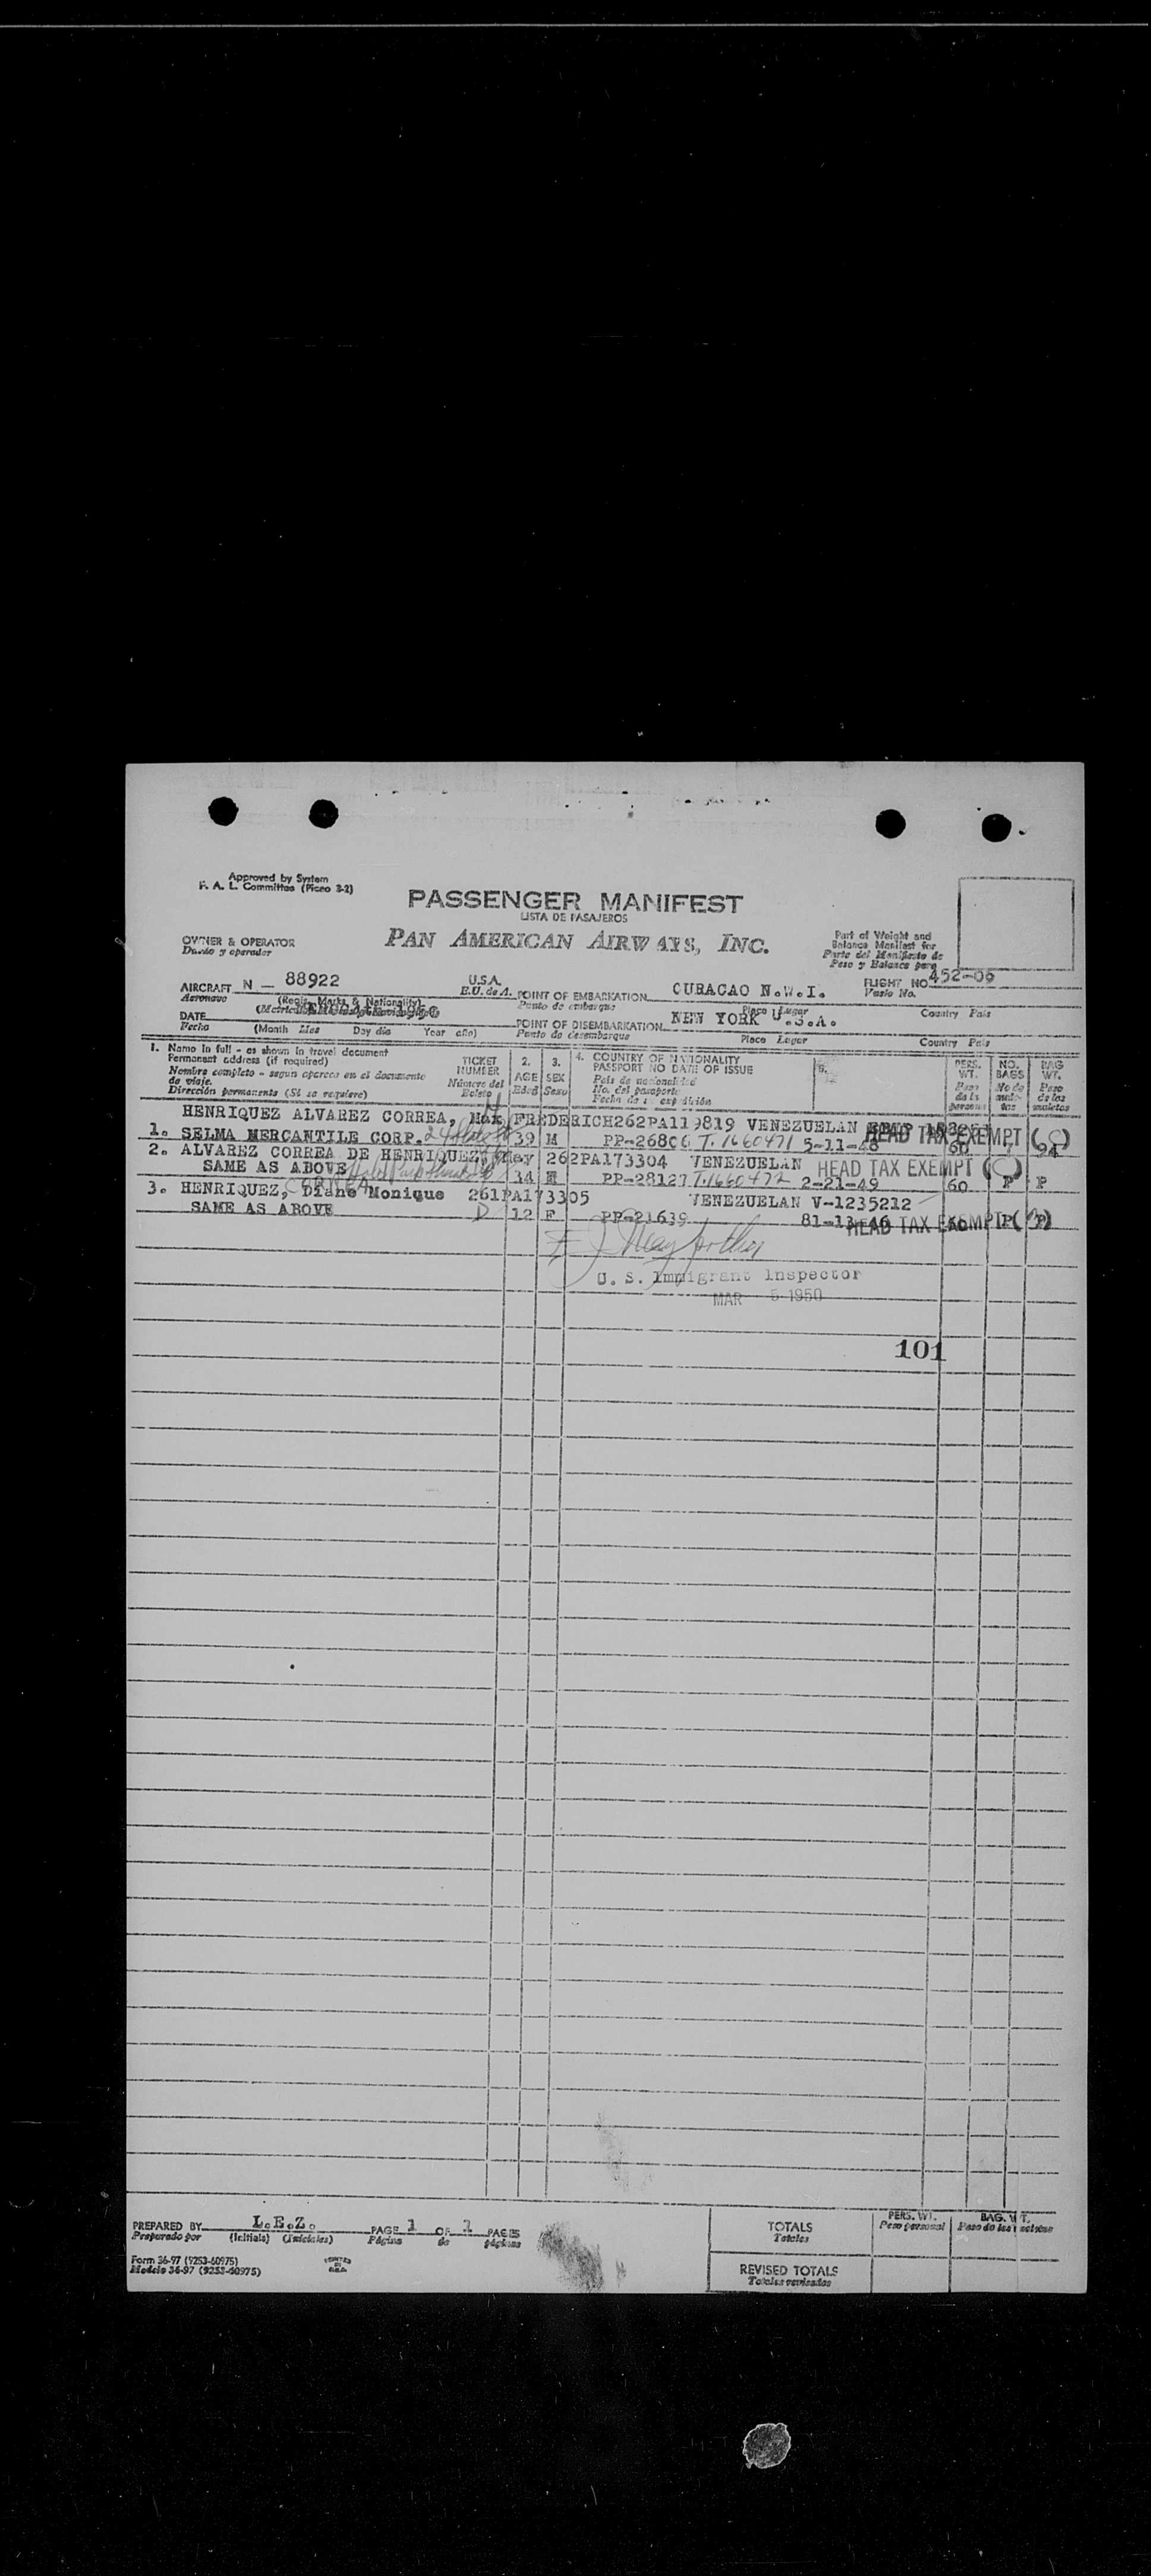 Approved by System
F. A. L. Committee (Picao 3-2)
PASSENGER MANIFEST
LISTA DE PASAJEROS
PAN AMERICAN AIRWAYS, INC.
OWNER & OPERATOR
Dueño y operador
Part of Weight and
Balance Manifest for
Parte del Manifiesto de
Peso y Balance para
AIRCRAFT N - 88922
Aeronave
(Regis. Marks & Nationality)
U.S.A.
E.U. de A.
POINT OF EMBARKATION CURACAO N.W.I.
Punto de embarque
Place Lugar
Country Pais
FLIGHT NO 452-05
Vuelo No.
DATE
Fecha
(Month Mes Day dia Year año)
POINT OF DISEMBARKATION NEW YORK U.S.A.
Punto de desembarque
Place Lugar
Country Pais
1. Name in full - as shown in travel document
Permanent address (if required)
Nombre completo - segun aparece en el documento
de viaje.
Dirección permanente (Si se requiere)
TICKET
NUMBER
Número del
Boleto
2.
AGE
Edad
3.
SEX
Sexo
4. COUNTRY OF NATIONALITY
PASSPORT NO DATE OF ISSUE
Pais de nacionalidad
No. del pasaporte
Fecha de expedición
5.
PERS.
WT.
Peso
de la
persona
NO.
BAGS
No de
male-
tas
BAG
WT.
Peso
de las
maletas
HENRIQUEZ ALVAREZ CORREA, Max FREDERICH 262PA119819 VENEZUELAN
1. SELMA MERCANTILE CORP. 39 M PP-26806 T.1660471 5-11-48 HEAD TAX EXEMPT 60 94
2. ALVAREZ CORREA DE HENRIQUEZ, May 262PA173304 VENEZUELAN HEAD TAX EXEMPT
SAME AS ABOVE 34 F PP-28127 T.1660472 2-21-49 60 P P
CORREA
3. HENRIQUEZ, Diane Monique 261PA173305 VENEZUELAN V-1235212
SAME AS ABOVE D 12 F PP-21639 81-13-46 HEAD TAX EXEMPT P P
U. S. Immigrant Inspector
MAR 5 1950
101
PREPARED BY L.E.Z.
Preparado por (Initials) (Iniciales)
PAGE 1 OF 1 PAGES
Página de páginas
Form 36-97 (9253-60975)
Modelo 36-97 (9253-60975)
PRINTED
IN
U.S.A.
TOTALS
Totales
PERS. WT.
Peso personal
BAG. WT.
Peso de las maletas
REVISED TOTALS
Totales revisados